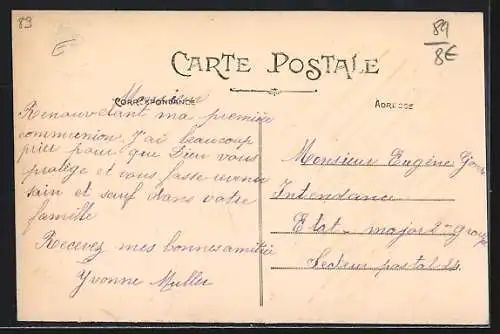 89
E
89
8€
CARTE POSTALE
CORRESPONDANCE
ADRESSE
Monsieur
Renouvelant ma première
communion J'ai beaucoup
prier pour que Dieu vous
protège et vous fasse revenir
sain et sauf dans votre
famille
Recevez mes bonnes amitié
Yvonne Muller
Monsieur Eugène
Intendance
Etat-major 2me Groupe
Secteur postal 24